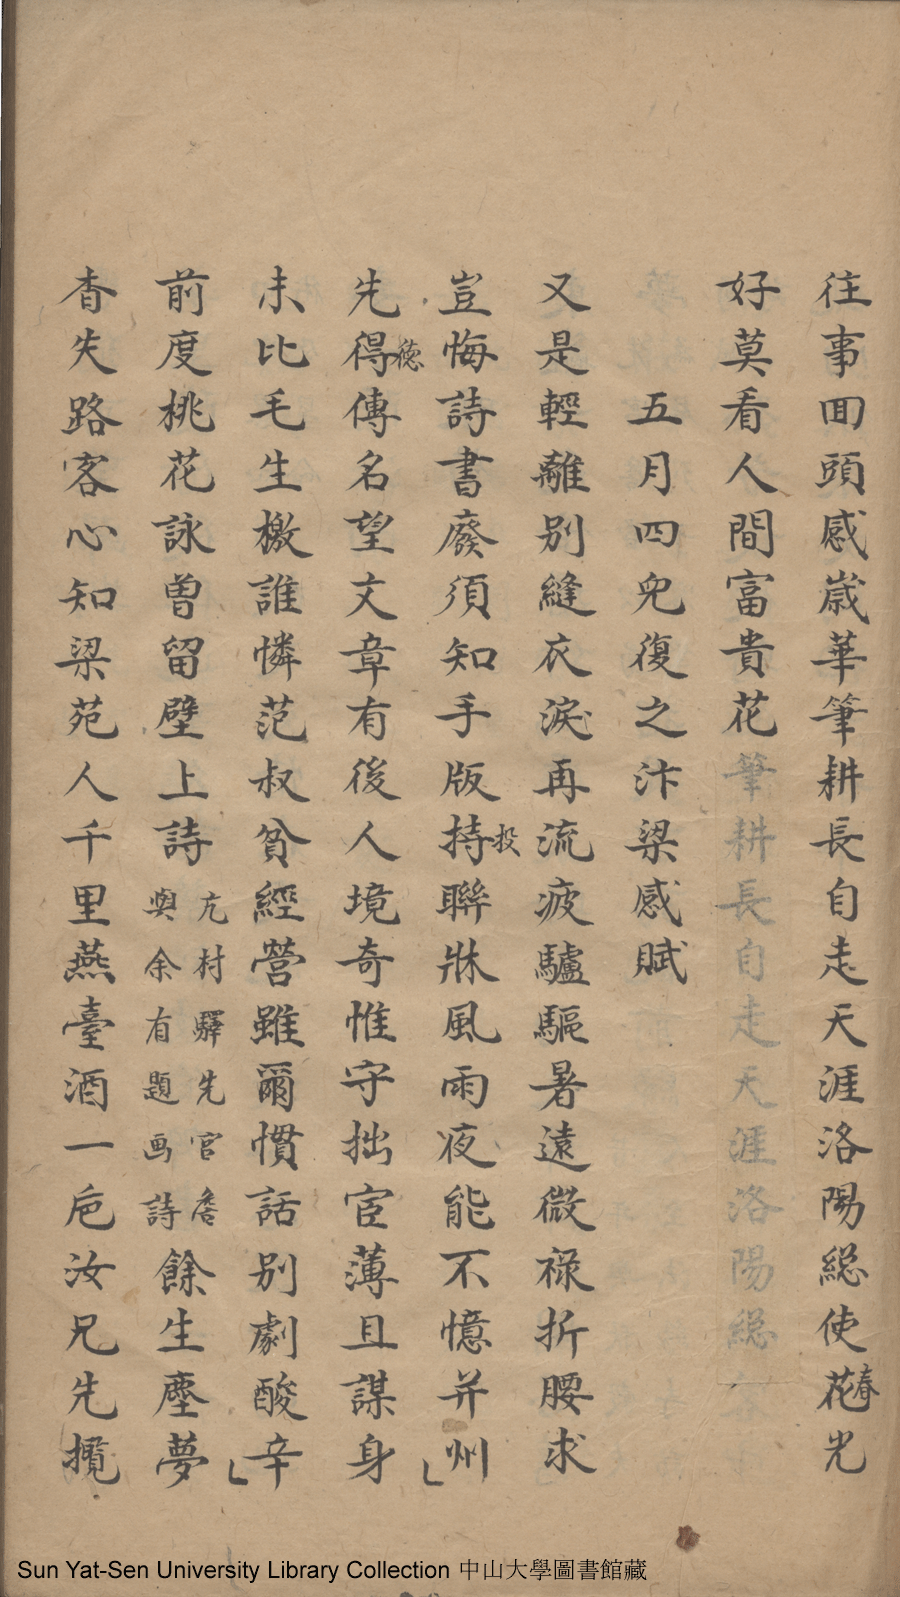 往事回頭感歲華筆耕長自走天涯洛陽総使花春光
好莫看人間富貴花
五月四兒復之汴梁感賦
又是輕離别縫衣淚再流疲驢驅暑遠微祿折腰求
豈悔詩書廢須知手版持投聯牀風雨夜能不憶并州
先得德傳名望文章有後人境奇惟守拙宦薄且謀身
未比毛生檄誰憐范叔貧經營雖爾慣話别劇酸辛
前度桃花詠曾留壁上詩亢村驛先官詹與余有題画詩餘生塵夢
杳失路客心知梁苑人千里燕臺酒一巵汝兄先攬
Sun Yat-Sen University Library Collection 中山大學圖書館藏